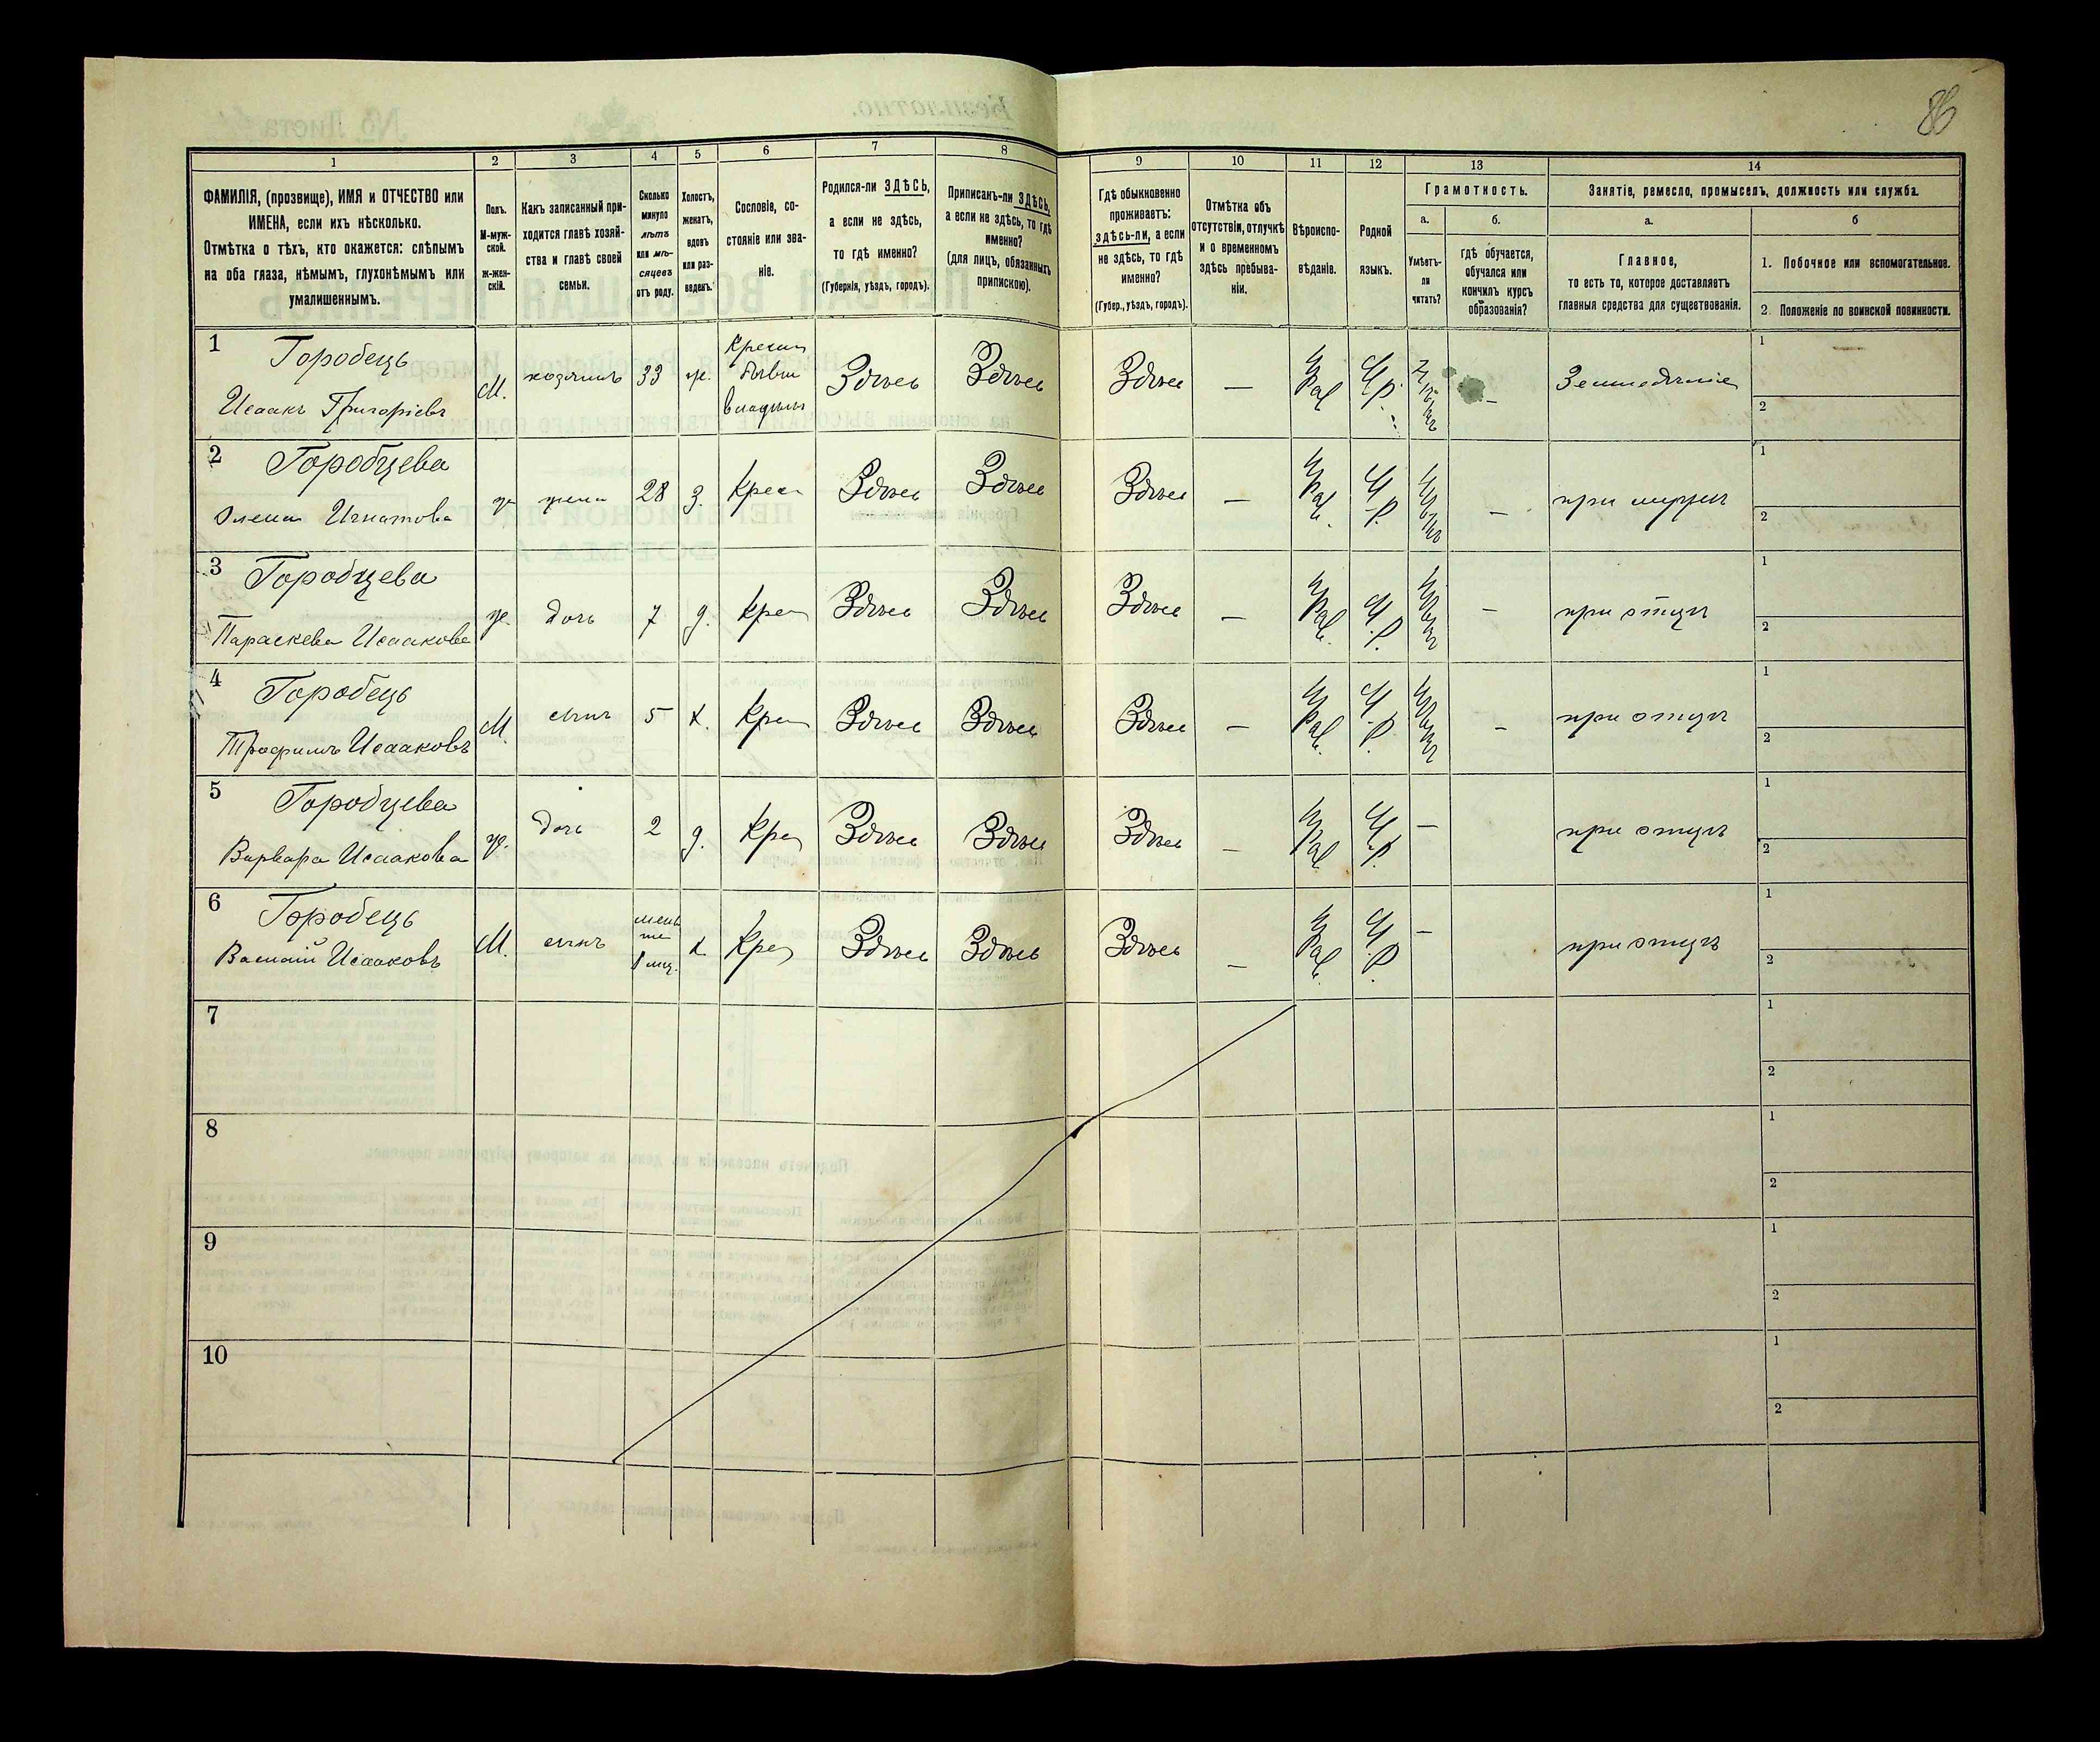 86
1
2
3
4
5
6
7
8
9
10
11
12
13
14
ФАМИЛІЯ, (прозвище), ИМЯ и ОТЧЕСТВО или
ИМЕНА, если ихъ нѣсколько.
Отмѣтка о тѣхъ, кто окажется: слѣпымъ
на оба глаза, нѣмымъ, глухонѣмымъ или
умалишеннымъ.
Полъ.
М-муж-
ской.
ж-жен-
скій.
Какъ записанный при-
ходится главѣ хозяй-
ства и главѣ своей
семьи.
Сколько
минуло
лѣтъ
или мѣ-
сяцевъ
отъ роду.
Холостъ,
женатъ,
вдовъ
или раз-
веденъ.
Сословіе, со-
стояніе или зва-
ніе.
Родился-ли ЗДѢСЬ,
а если не здѣсь,
то гдѣ именно?
(Губернія, уѣздъ, городъ).
Приписанъ-ли ЗДѢСЬ,
а если не здѣсь, то гдѣ
именно?
(для лицъ, обязанныхъ
припискою).
Гдѣ обыкновенно
проживаетъ:
здѣсь-ли, а если
не здѣсь, то гдѣ
именно?
(Губер., уѣздъ, городъ).
Отмѣтка объ
отсутствіи, отлучкѣ
и о временномъ
здѣсь пребыва-
ніи.
Вѣроиспо-
вѣданіе.
Родной
языкъ.
Грамотность.
а.
Умѣетъ-
ли
читать?
б.
гдѣ обучается,
обучался или
кончилъ курсъ
образованія?
Занятіе, ремесло, промыселъ, должность или служба.
а.
Главное,
то есть то, которое доставляетъ
главныя средства для существованія.
б
1. Побочное или вспомогательное.
2. Положеніе по воинской повинности.
1 Городець
Исаакъ Григоріевъ
М. хозяинъ 33 ж. Крестьян бывш владѣльч Здѣсь Здѣсь Здѣсь — Прав М.р. — Земледѣліе 1 — 2
2 Городцева
Олена Игнатова
ж жена 28 з. Крест Здѣсь Здѣсь Здѣсь — Прав. М.р. — при мужѣ 1 2
3 Городцева
Параскева Исаакова
ж. дочь 7 д. Крест Здѣсь Здѣсь Здѣсь — Прав. М.р. — при отцѣ 1 2
4 Городець
Трофимъ Исааковъ
М. сынъ 5 х. Крест Здѣсь Здѣсь Здѣсь — Прав. М.р. — при отцѣ 1 2
5 Городцева
Варвара Исаакова
ж. дочь 2 д. Крест Здѣсь Здѣсь Здѣсь — Прав. М.р. — при отцѣ 1 2
6 Городець
Василій Исааковъ
М. сынъ меньше 1 мц. х. Крест Здѣсь Здѣсь Здѣсь — Прав. М.р. — при отцѣ 1 2
7 1 2
8 1 2
9 1 2
10 1 2